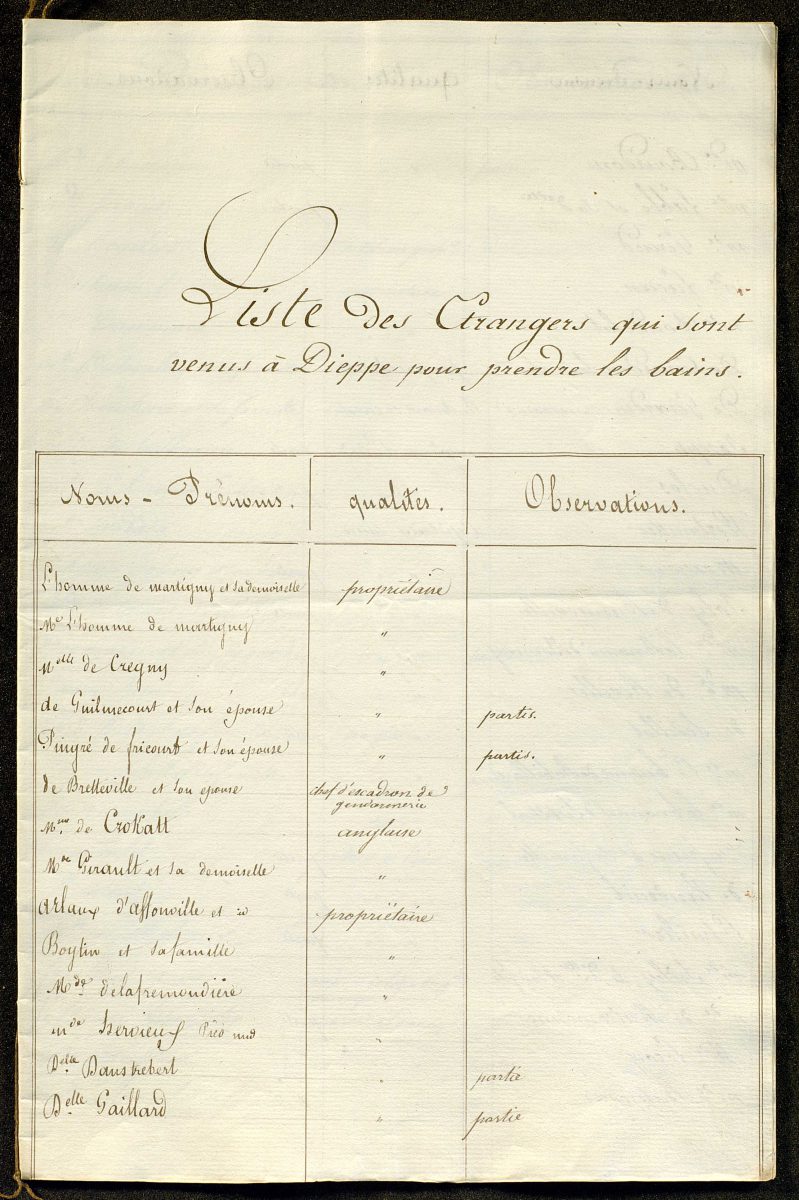 Liste des Etrangers qui sont
venus à Dieppe pour prendre les bains.
Noms - Prénoms. qualités. Observations.
L'homme de martigny et sa demoiselle propriétaire
Me L'homme de martigny "
Melle de Cregny "
de Guilmecourt et son épouse " partis.
Pingré de fricourt et son épouse " partis.
de Bretteville et son epouse chef d'escadron de
gendarmerie
Mme de Crokatt anglaise
Mde Girault et sa demoiselle "
Arlaux d'affonville et propriétaire
Boytin et sa famille "
Mde delafremondière "
mde hervieux "
Delle "  partie
Delle Gaillard " partie